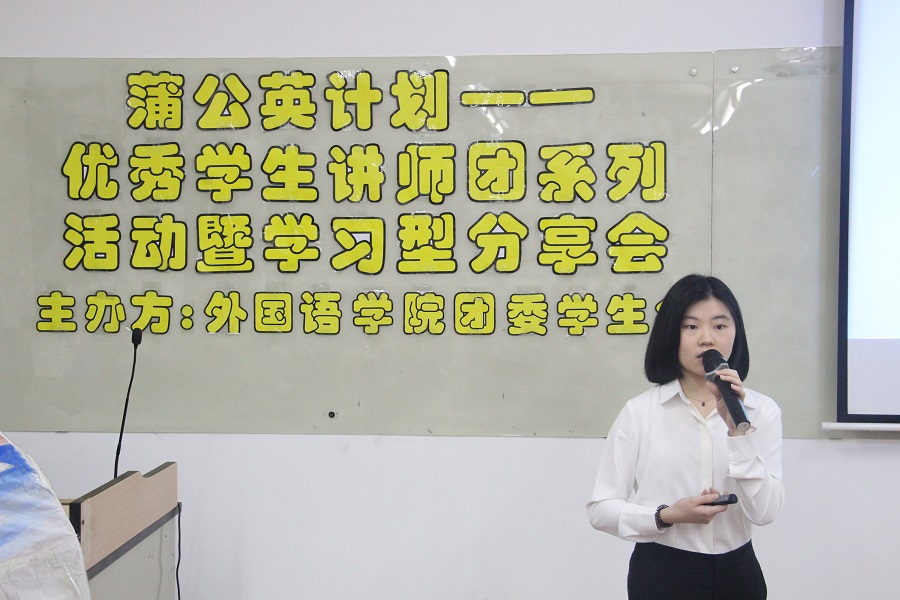 蒲公英计划——
优秀学生讲师团系列
活动暨学习型分享会
主办方:外国语学院团委学生